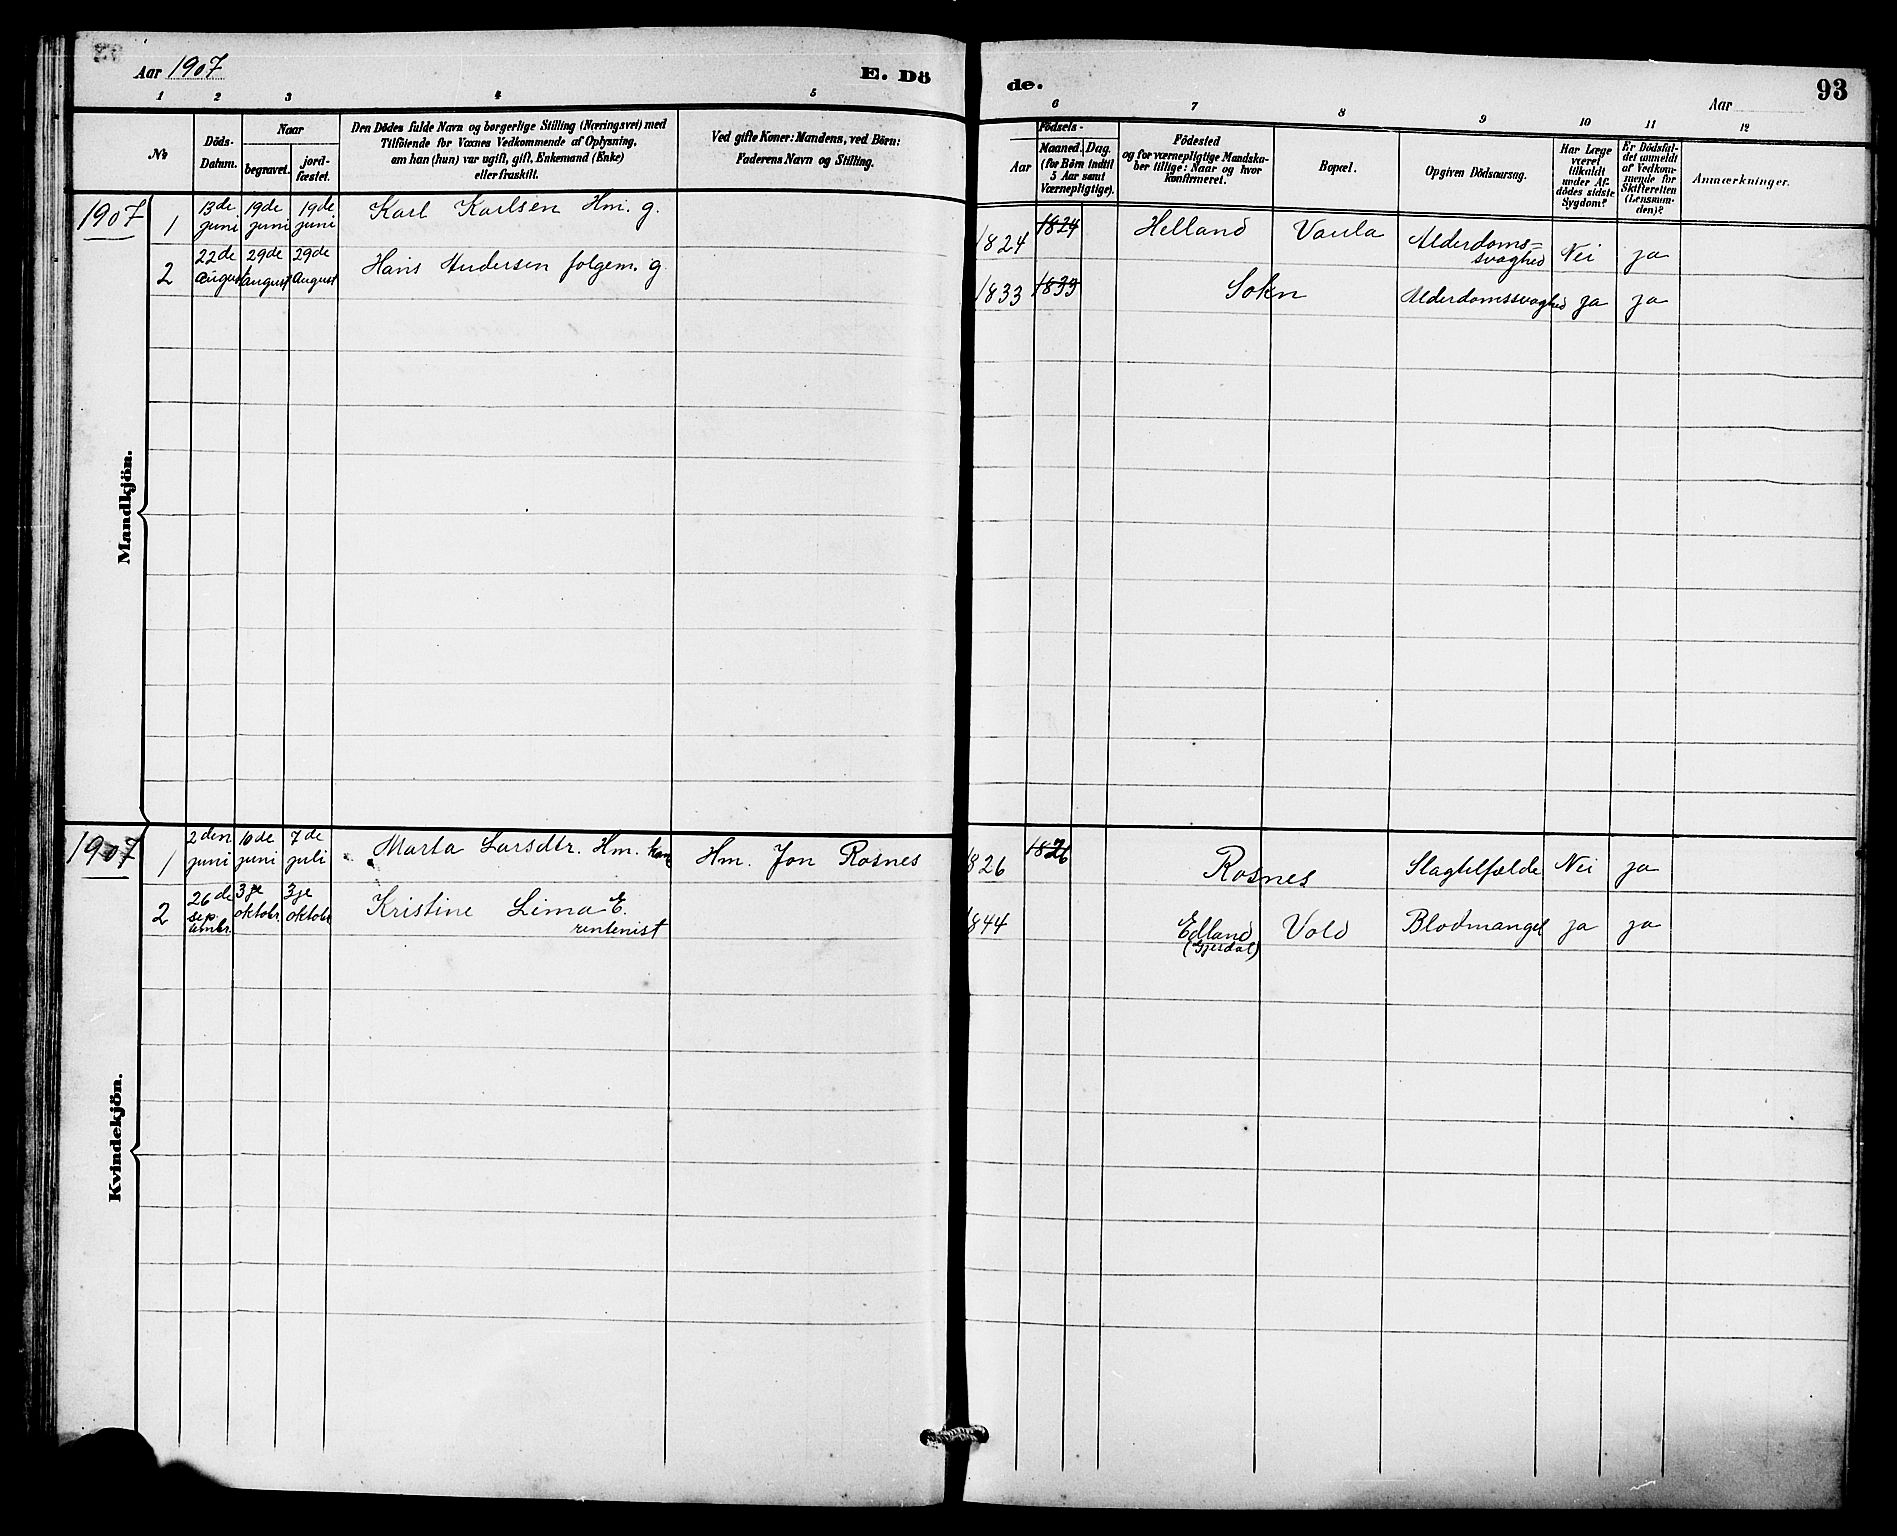 Aar 1907
E. Dö
de.
Aar
93
1 2 3 4 5 6 7 8 9 10 11 12
No
Döds-
Datum.
Naar
begravet.
jord-
fæstet.
Den Dödes fulde Navn og borgerlige Stilling (Næringsvei) med
Tilföiende for Voxnes Vedkommende af Oplysning,
om han (hun) var ugift, gift, Enkemand (Enke)
eller fraskilt.
Ved gifte Koner: Mandens, ved Börn:
Faderens Navn og Stilling.
Födsels-
Aar
Maaned. Dag.
(for Börn indtil
5 Aar samt
Værnepligtige).
Födested
og for værnepligtige Mandska-
ber tillige: Naar og hvor
konfirmeret.
Bopæl.
Opgiven Dödsaarsag.
Har Læge
været
tilkaldt
under Af-
dödes sidste
Sygdom?
Er Dödsfal-
det anmeldt
af Vedkom-
mende for
Skifteretten
(Lensman-
den)?
Anmærkninger.
Mandkjön.
1907
1 13de juni 19de juni 19de juni Karl Karlsen Hm. g. 1824 1824 Helland Vaula Alderdoms=
svaghed Nei ja
2 22de august 29de august 29de august Hans Andersen folgem. g. 1833 1833 Sokn Alderdomssvaghed ja ja
Kvindekjön.
1907
1 2den juni 10de juni 7de juli Marta Larsdtr. Hm. kone Hm. Jon Rosnes 1826 1826 Rosnes Slagtilfælde Nei ja
2 26de september 3je oktobr 3je oktobr Kristine Lima E.
rentenist 1844 Edland
(Gjesdal) Vold Blodmangel ja ja